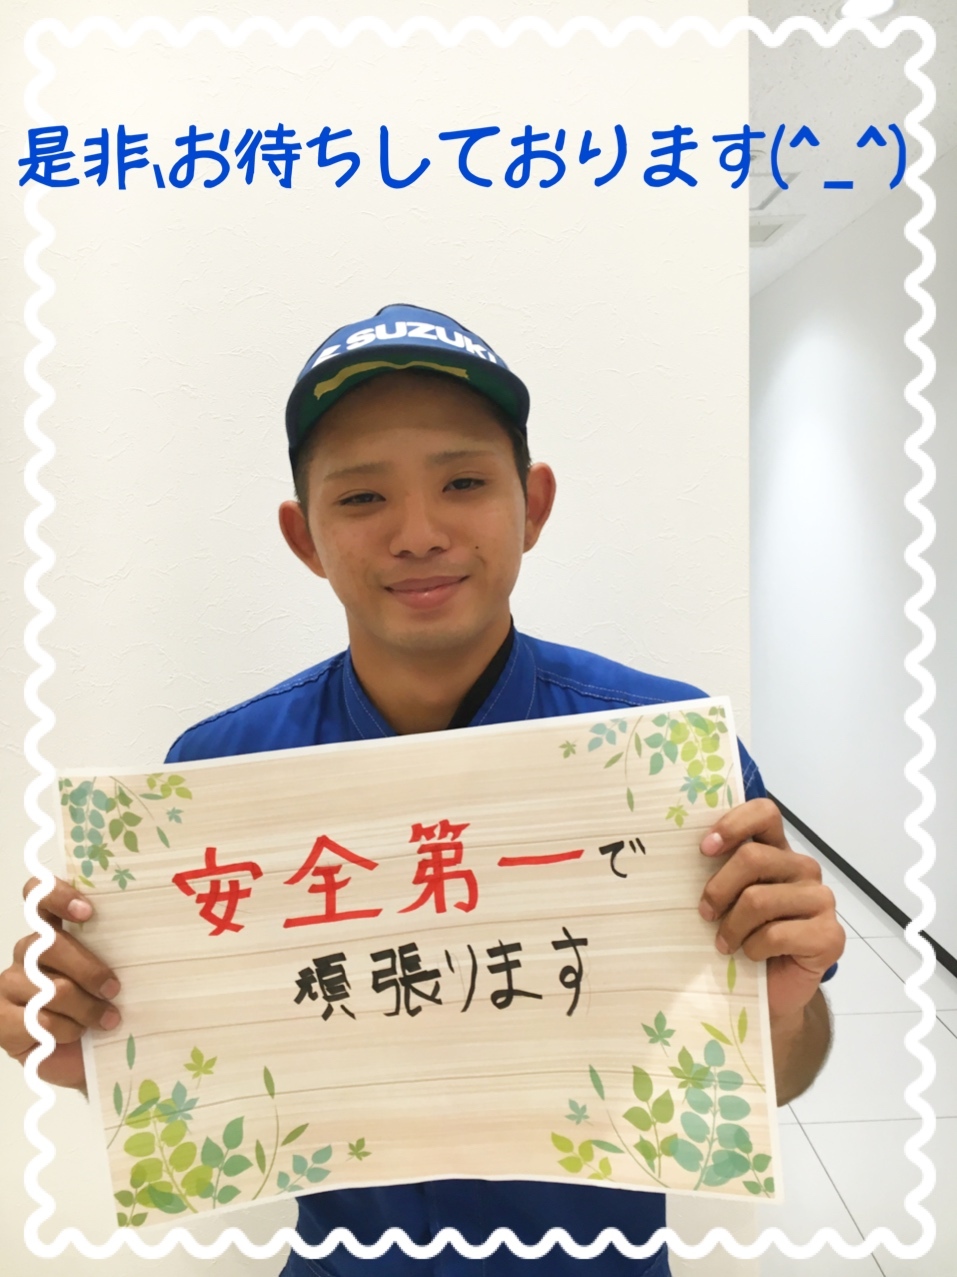 是非、お待ちしております(^_^)
SUZUKI
安全第一で
頑張ります